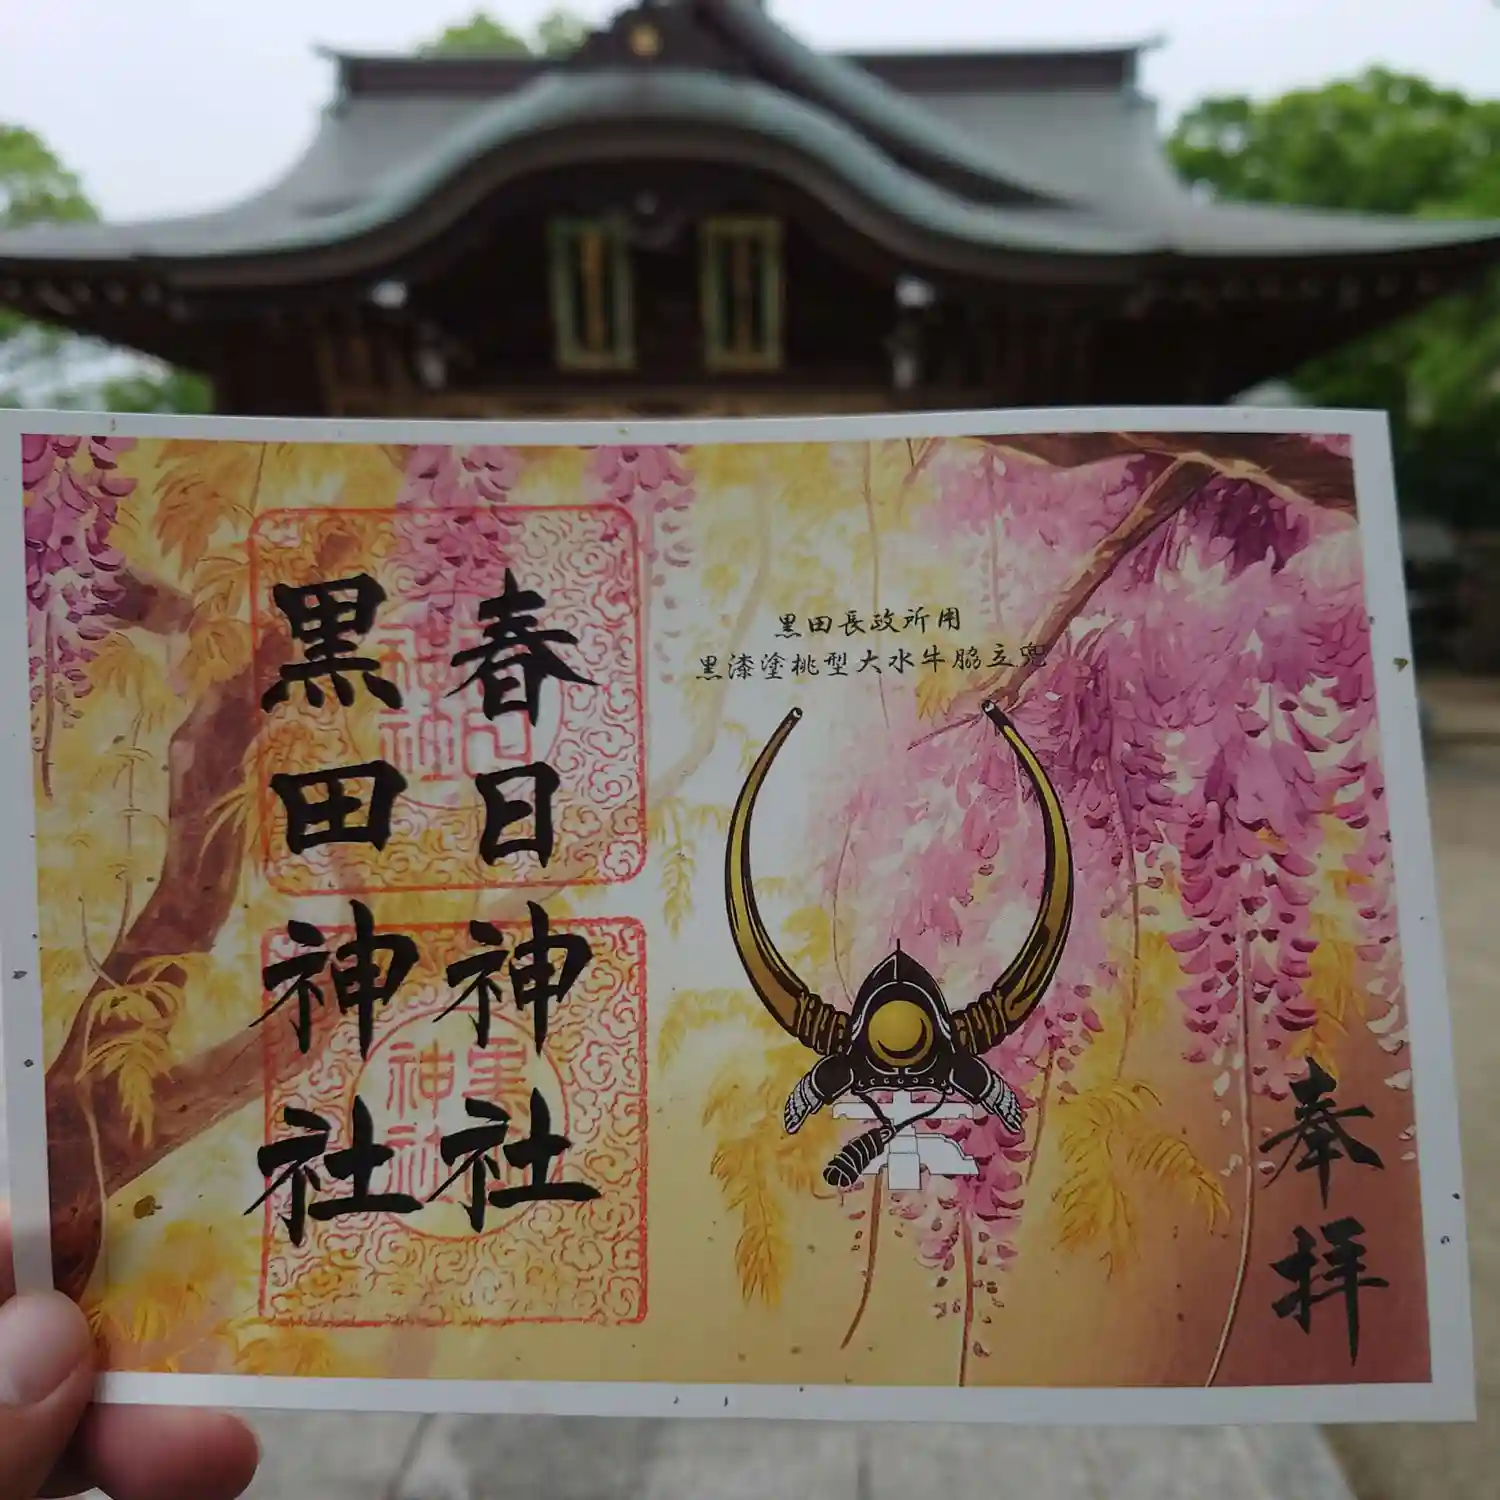 奉拝
黒田長政所用
黒漆塗桃型大水牛脇立兜
春日神社
黒田神社
黒田
神社